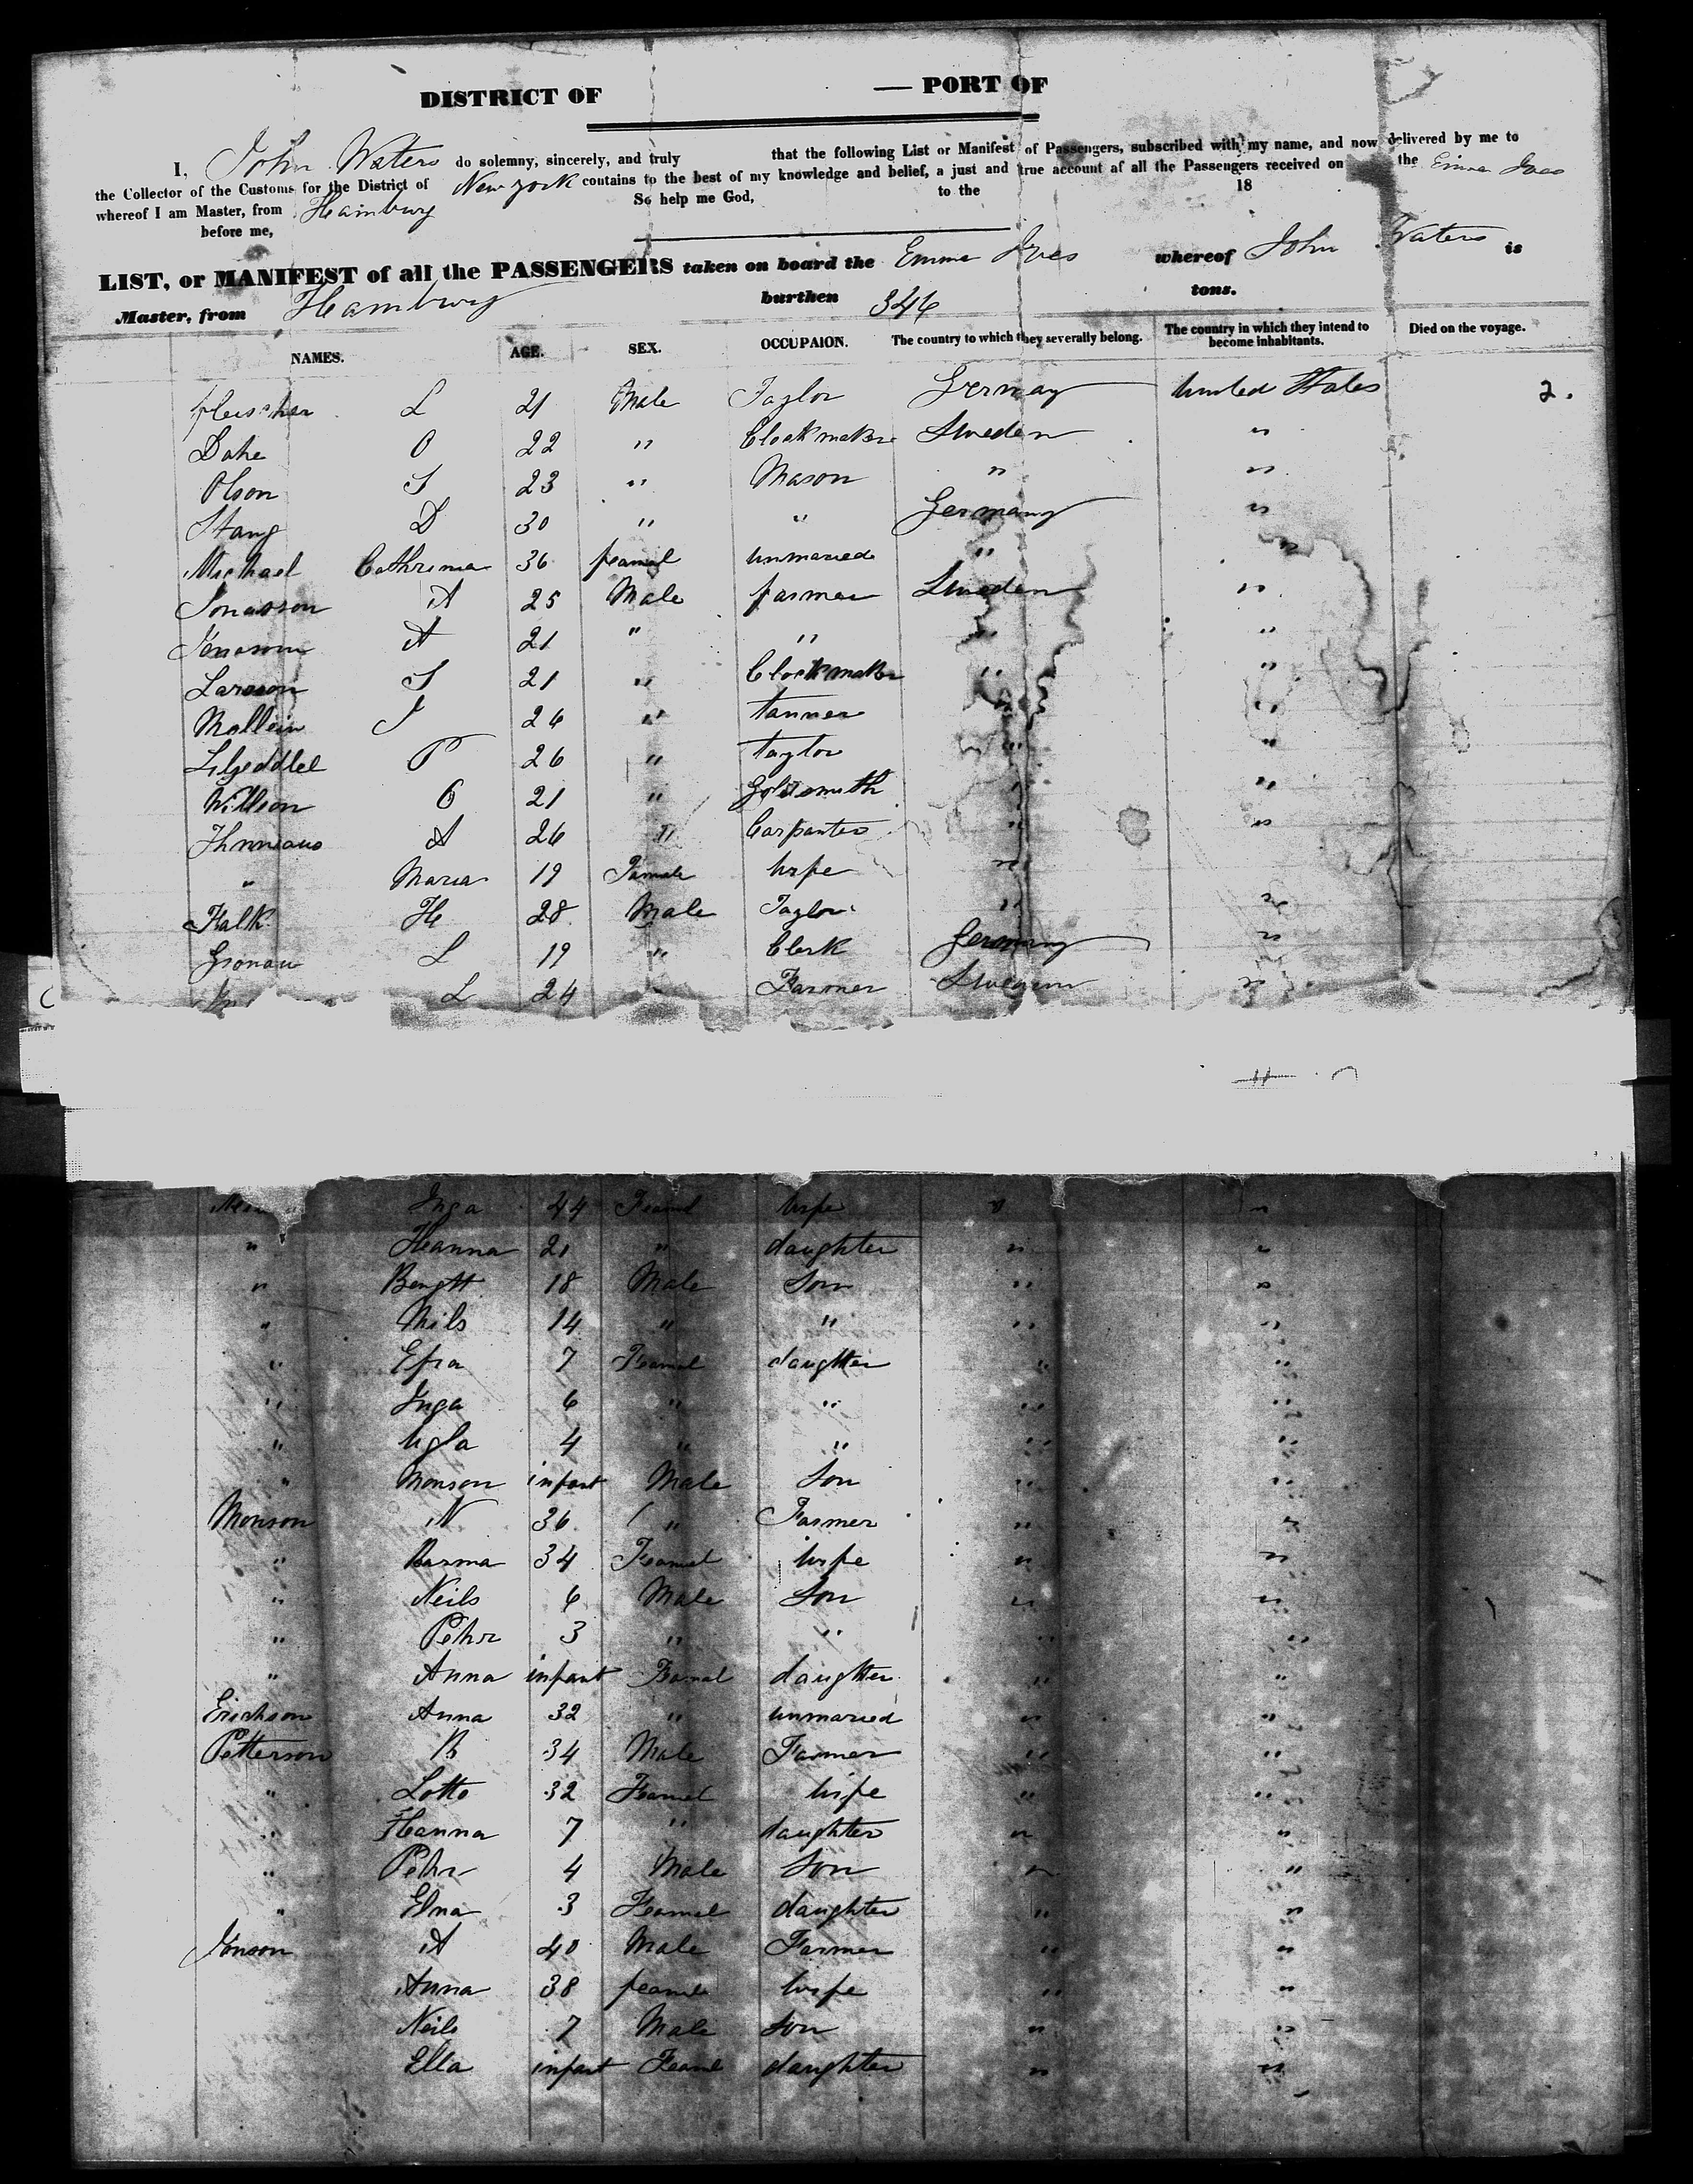 DISTRICT OF — PORT OF
I, John Waters do solemny, sincerely, and truly that the following List or Manifest of Passengers, subscribed with my name, and now delivered by me to
the Collector of the Customs for the District of New york contains to the best of my knowledge and belief, a just and true account af all the Passengers received on the Emma Ives
whereof I am Master, from Hamburg So help me God, to the 18
before me,
LIST, or MANIFEST of all the PASSENGERS taken on board the Emma Ives whereof John Waters is
Master, from Hamburg burthen 346 tons.
NAMES. AGE. SEX. OCCUPAION. The country to which they severally belong. The country in which they intend to become inhabitants. Died on the voyage.
Fleischer L 21 Male Taylor Germay United States 2.
Dahe O 22 " Clockmaker Sweden "
Olson S 23 " Mason " "
Stang D 30 " " Germany "
Michael Cathrina 36 feamel unmaried " "
Jonasson A 25 Male farmer Sweden "
A 21 " " " "
Larsson S 21 " Clockmaker " "
Mollein J 26 " tanner " "
P 26 " taylor " "
Willson O 21 " Goldsmith " "
A 26 " Carpanter " "
" Maria 19 Famale wife "
Falk H 28 Male Taylor " "
Gronau L 19 " Clerk Germany "
L 24 Farmer Sweden "
Inga 44 Feamel wife " "
" Hanna 21 " daughter " "
" Bengtt 18 Male Son " "
" Nils 14 " " " "
" 7 Feamel daughter " "
" Inga 6 " " " "
" 4 " " " "
" Monson infant Male Son " "
Monson N 36 " Farmer " "
" Barma 34 Feamel wife " "
" Neils 6 Male Son " "
" Pehr 3 " " " "
" Anna infant Feamel daughter " "
Erickson Anna 32 " unmaried " "
Petterson B 34 Male Farmer " "
" Lotto 32 Feamel wife " "
" Hanna 7 " daughter " "
" Pehr 4 Male Son " "
" Elna 3 Feamel daughter " "
Jonson A 40 Male Farmer " "
Anna 38 feamel wife " "
Neils 7 Male Son " "
Ella infant Feamel daughter " "